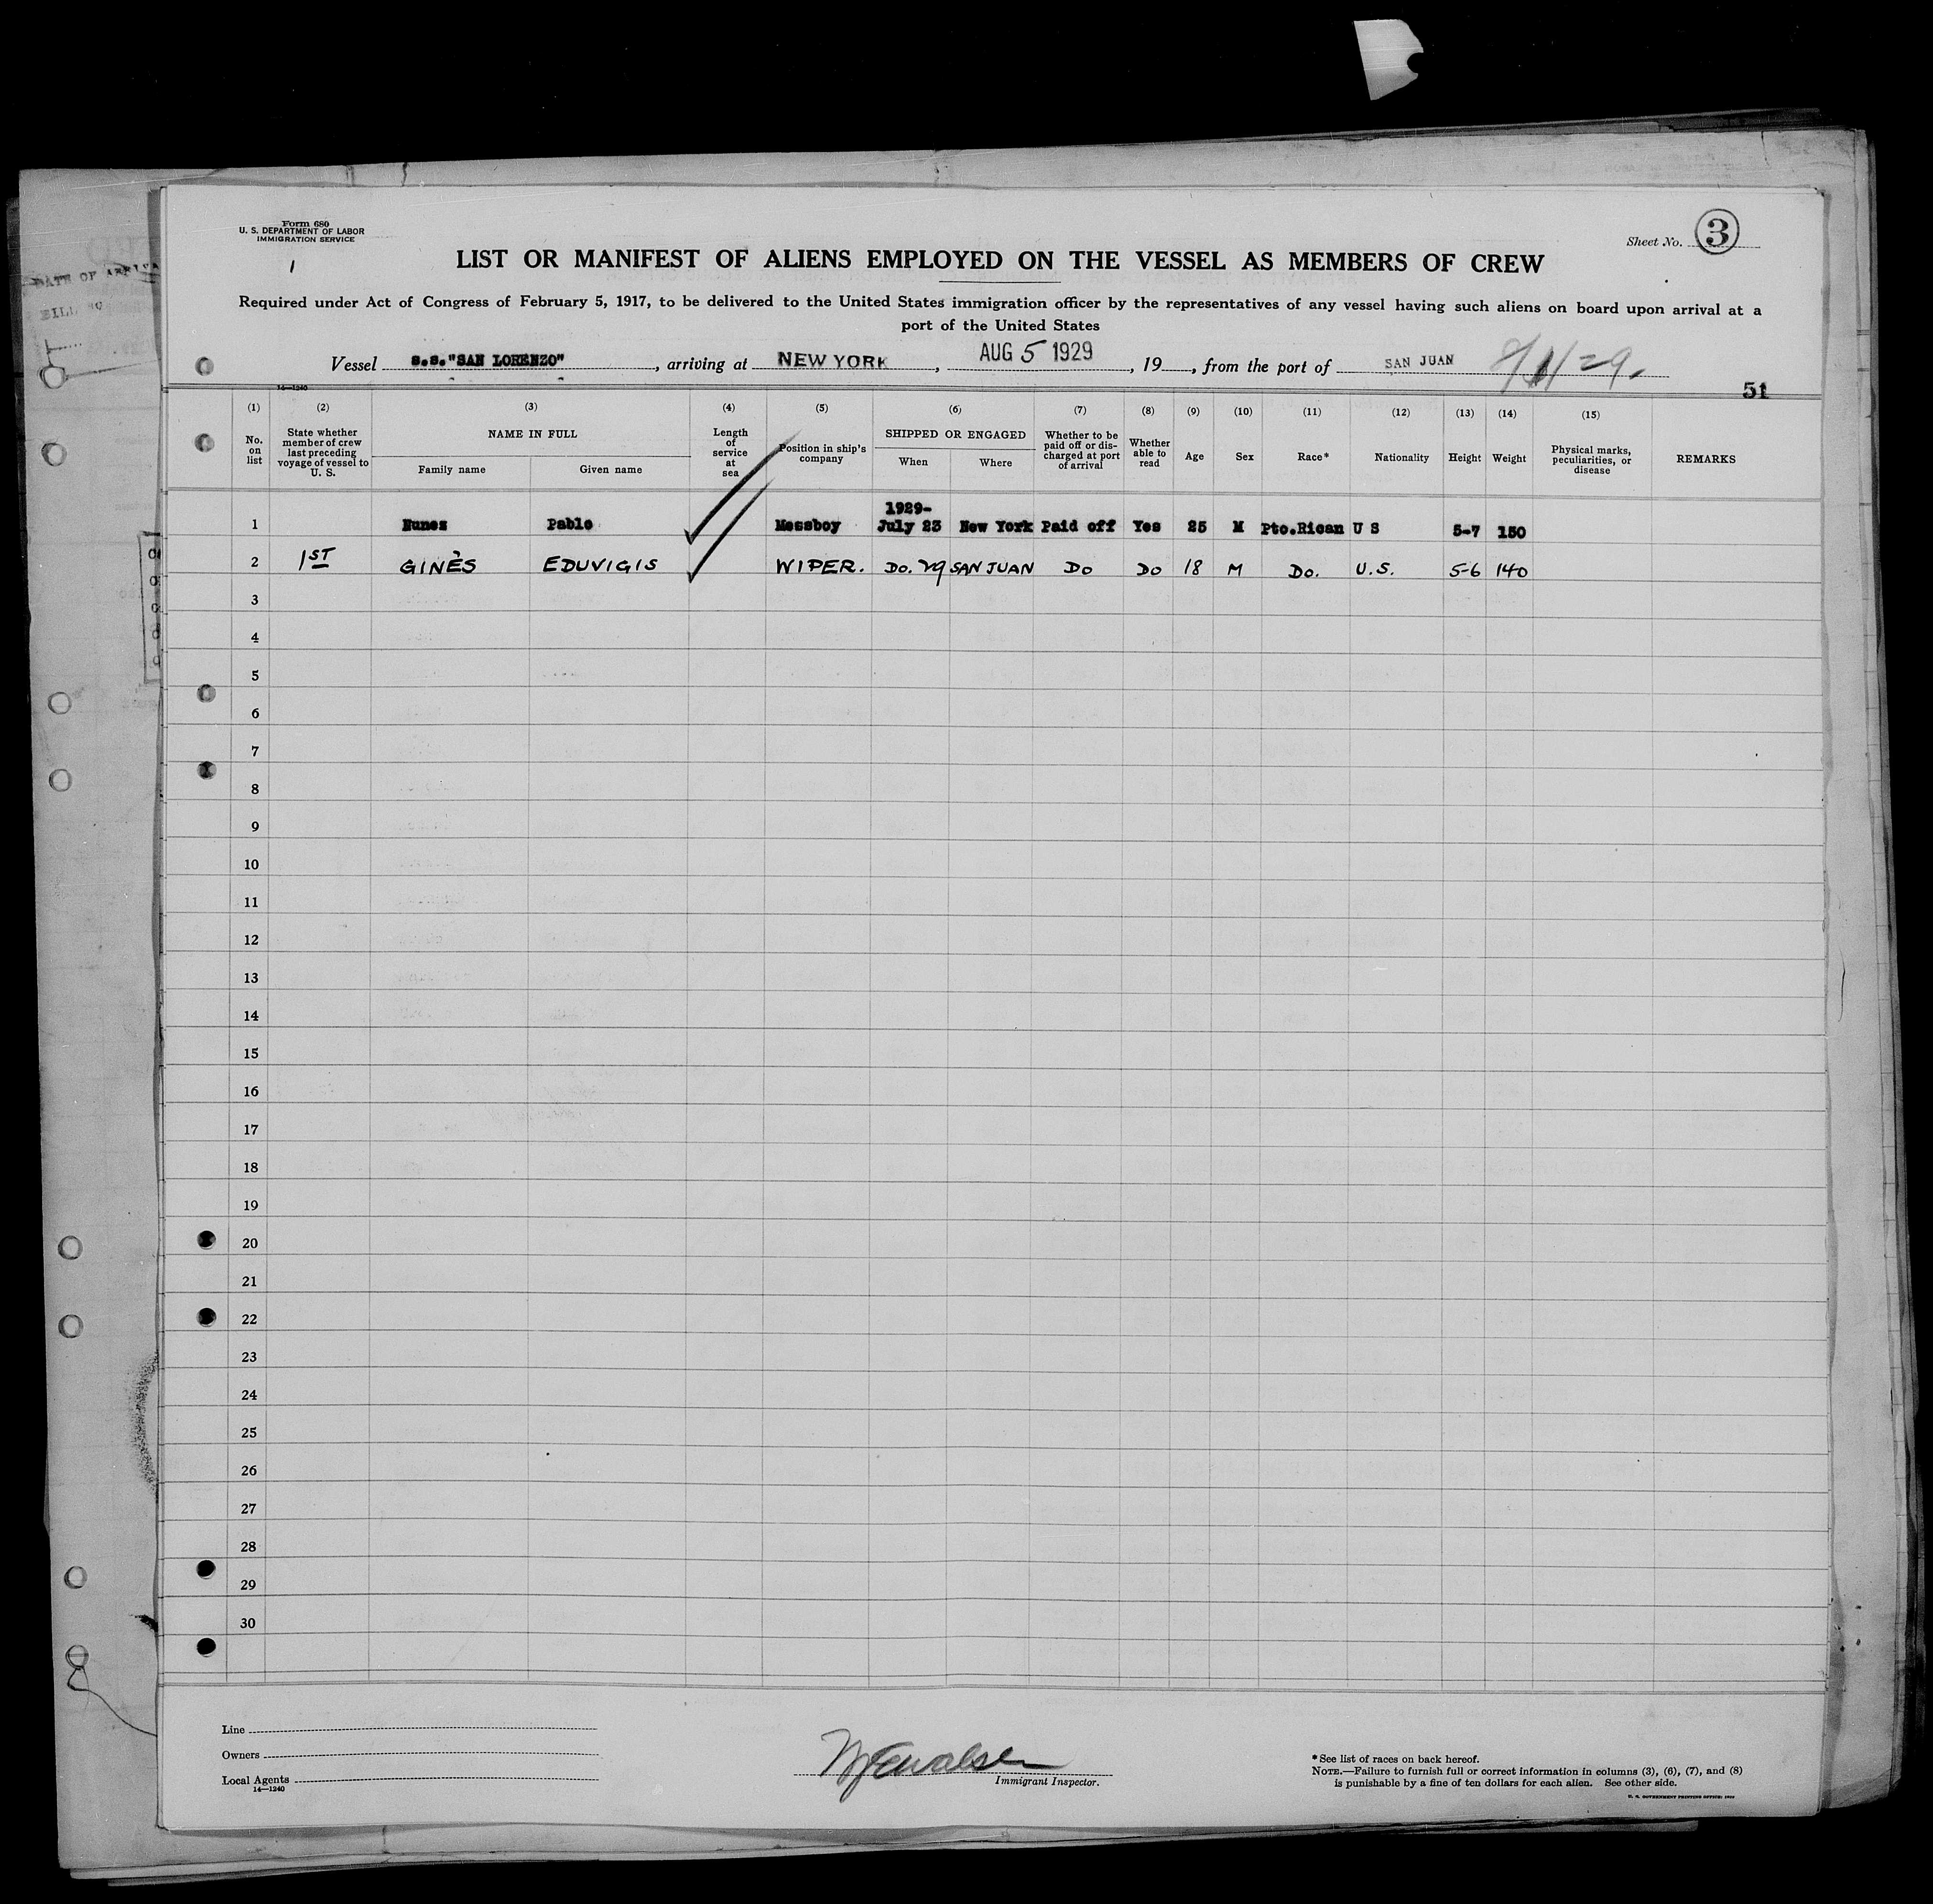 Form 680
U. S. DEPARTMENT OF LABOR
IMMIGRATION SERVICE
1
Sheet No. 3
LIST OR MANIFEST OF ALIENS EMPLOYED ON THE VESSEL AS MEMBERS OF CREW
Required under Act of Congress of February 5, 1917, to be delivered to the United States immigration officer by the representatives of any vessel having such aliens on board upon arrival at a
port of the United States
Vessel S.S. "SAN LORENZO", arriving at NEW YORK, AUG 5 1929, 19, from the port of SAN JUAN
51
14—1240
(1) (2) (3) (4) (5) (6) (7) (8) (9) (10) (11) (12) (13) (14) (15)
No. on list
State whether member of crew last preceding voyage of vessel to U. S.
NAME IN FULL
Family name Given name
Length of service at sea
Position in ship's company
SHIPPED OR ENGAGED
When Where
Whether to be paid off or discharged at port of arrival
Whether able to read
Age Sex Race* Nationality Height Weight
Physical marks, peculiarities, or disease
REMARKS
1 Nunez Pablo Messboy 1929- July 23 New York Paid off Yes 25 M Pto.Rican U S 5-7 150
2 1ST GINÈS EDUVIGIS WIPER. Do. 29 SAN JUAN Do Do 18 M Do. U.S. 5-6 140
3
4
5
6
7
8
9
10
11
12
13
14
15
16
17
18
19
20
21
22
23
24
25
26
27
28
29
30
Line
Owners
Local Agents
14—1240
Immigrant Inspector.
*See list of races on back hereof.
NOTE.—Failure to furnish full or correct information in columns (3), (6), (7), and (8)
is punishable by a fine of ten dollars for each alien. See other side.